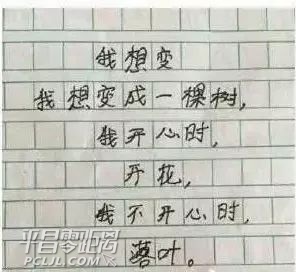 我想变
我想变成一棵树,
我开心时,
开花,
我不开心时,
落叶。
平昌零距离
PCLJL.COM